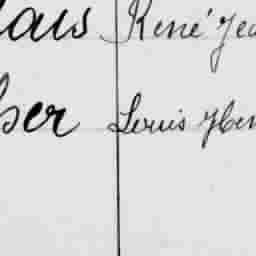 lais René Jea
ber Louis Hen